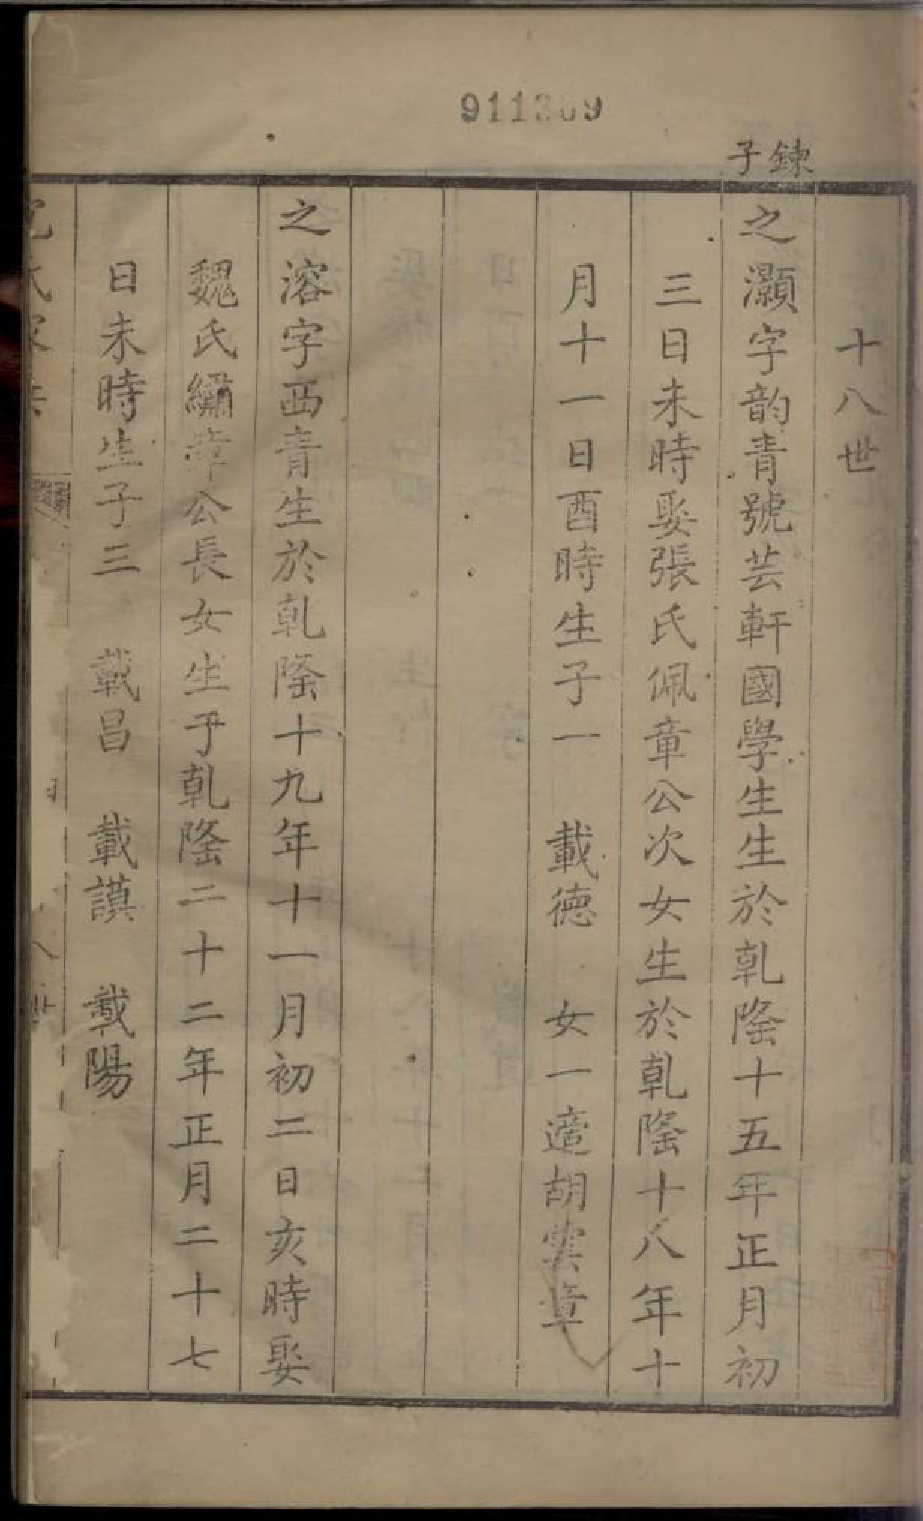 鍊子
十八世
之灝字韵青號芸軒國學生生於乹隆十五年正月初
三日未時娶張氏佩章公次女生於乹隆十八年十
月十一日酉時生子一 載德 女一適胡雲章
之溶字西青生於乹隆十九年十一月初二日亥時娶
魏氏繡章公長女生于乹隆二十二年正月二十七
日未時生子三 載昌 載謨 載陽
氏家